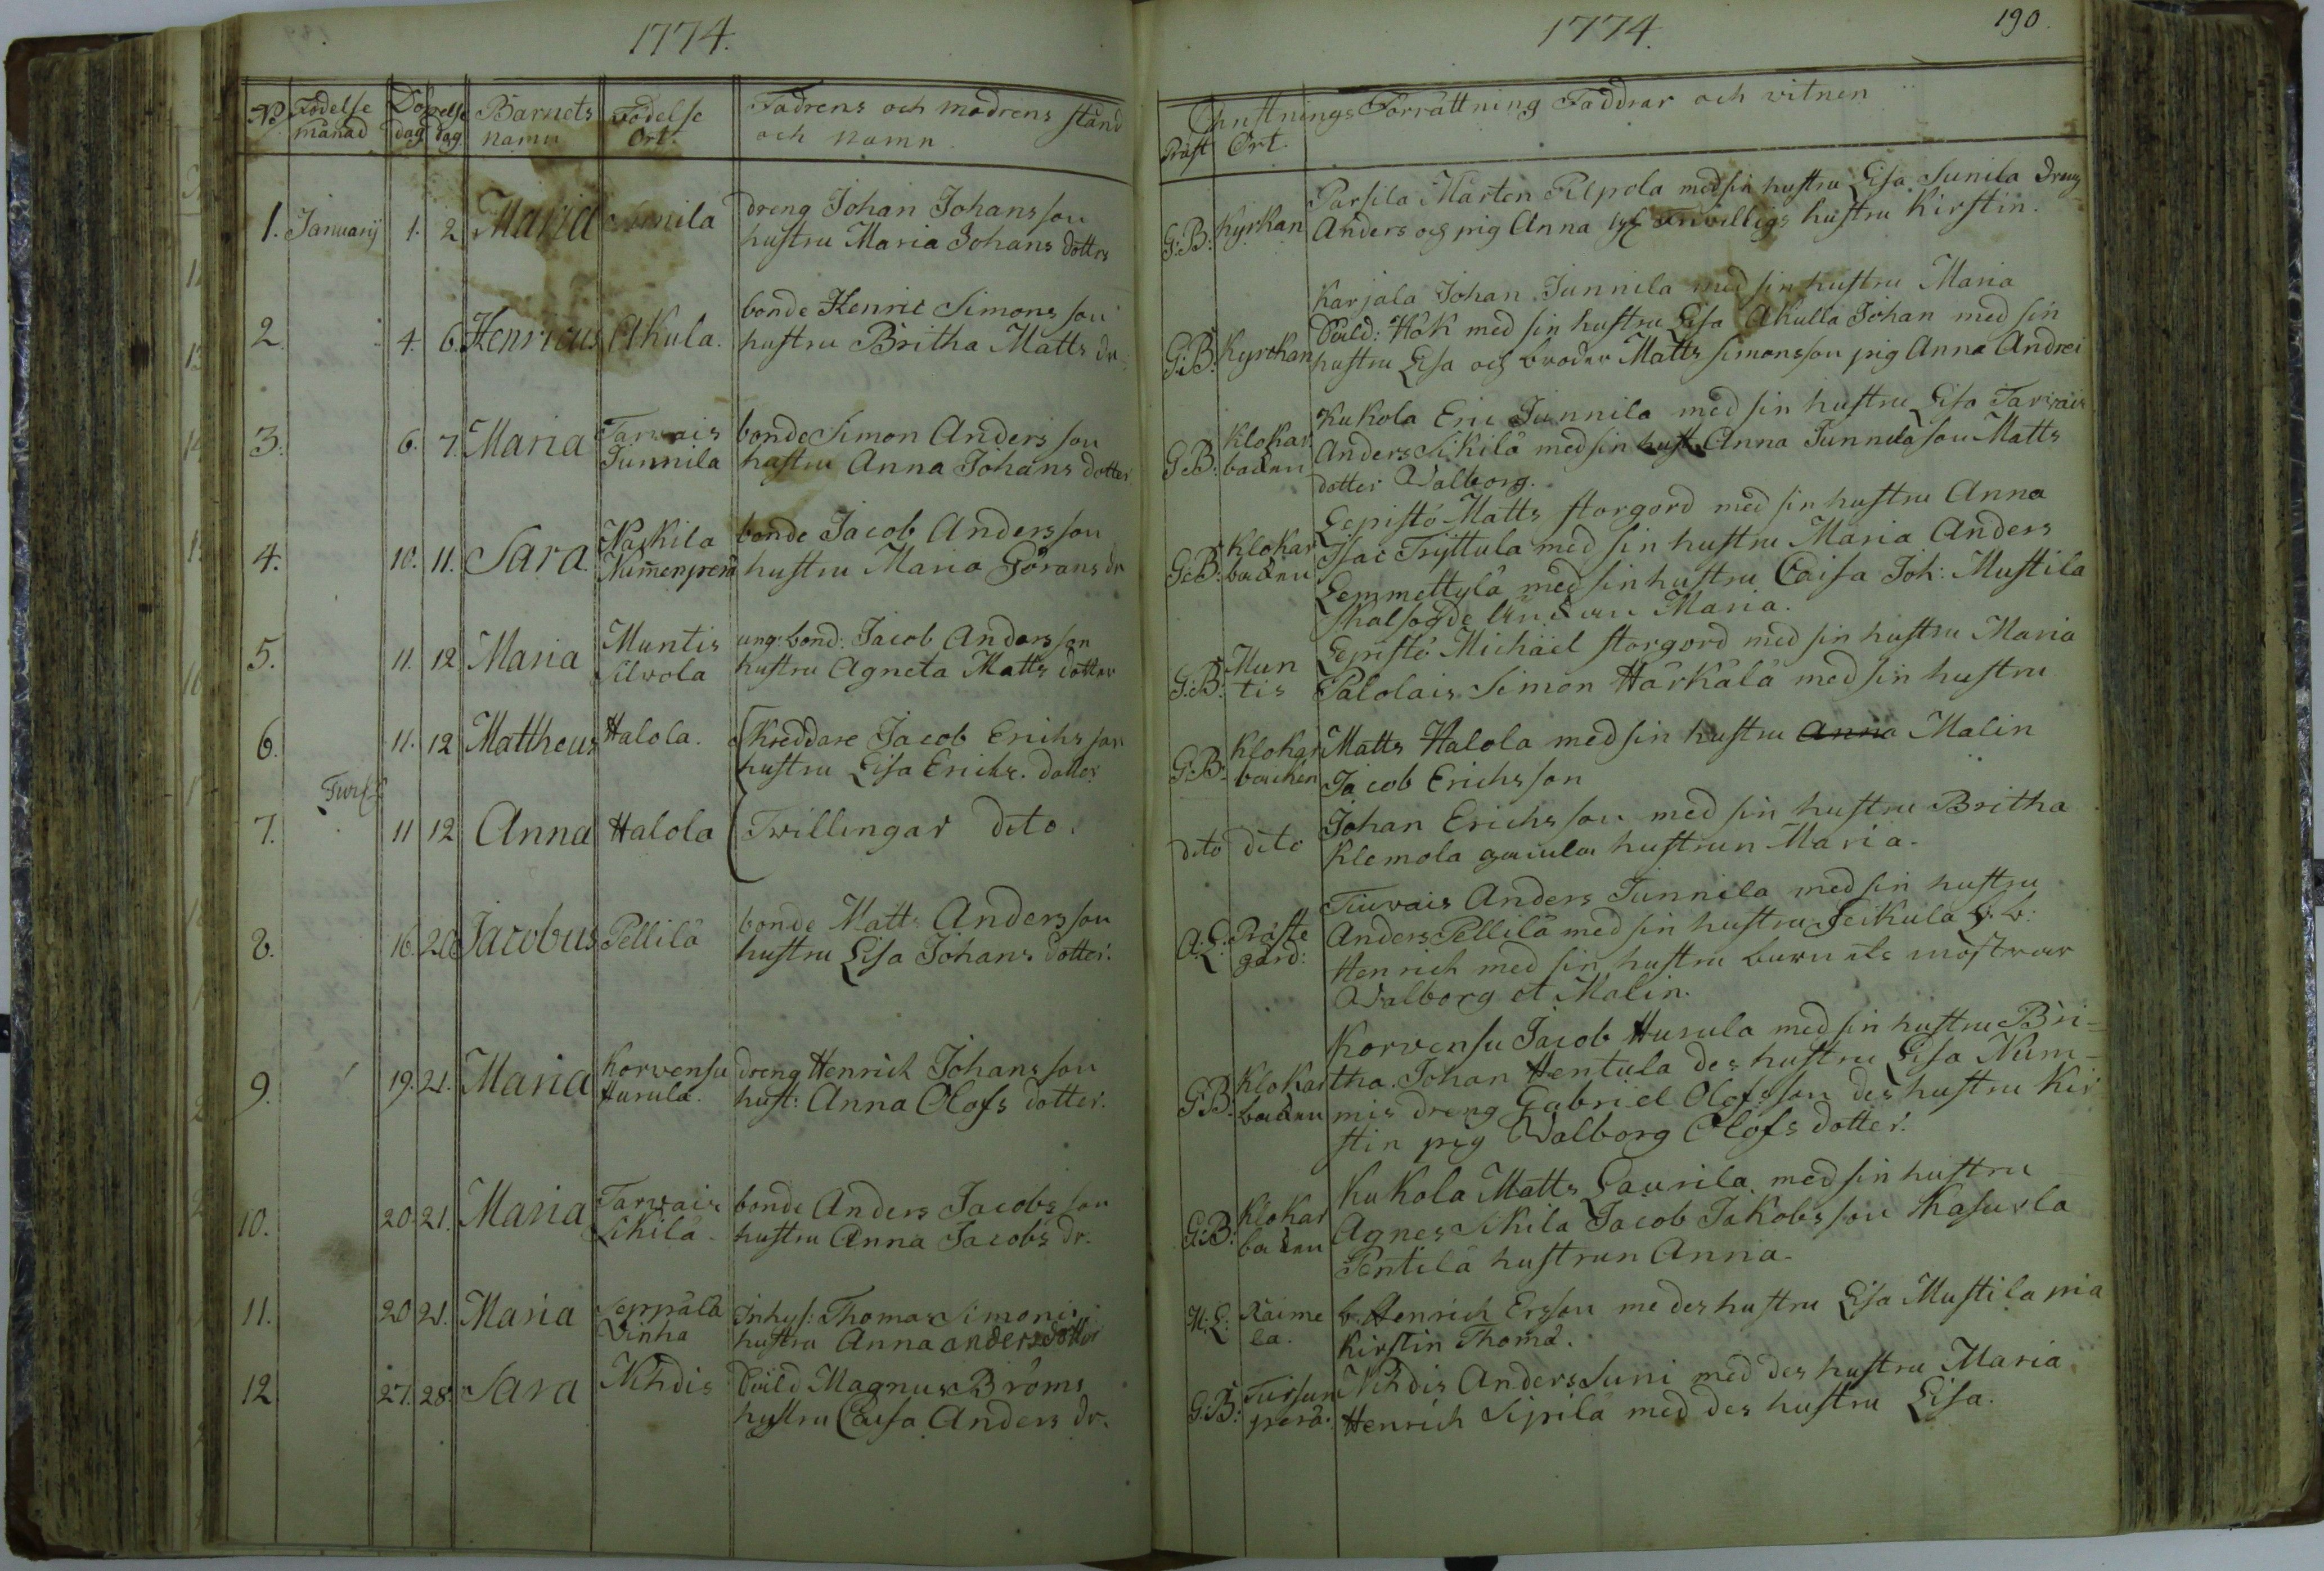 1774.
No Födelse månad Dag Döpelse dag. Barnets namn Födelse Ort. Fadrens och modrens stånd och namn
1. Januarij 1. 2 Maria
dreng Johan Johansson
hustru Maria Johans dotter
2. 4. 6. Henricus Akula.
bonde Henric Simons son
hustru Britha Matts dr.
3. 6. 7. Maria Tarvais Junnila
bonde Simon Anders son
hustru Anna Johans dotter
4. 10. 11. Sara.
bonde Jacob Andersson
hustru Maria Görans dr
5. 11. 12 Maria Muntis Silvola
ung: bond: Jacob Andersson
hustru Agneta Matts dotter
6. 11. 12 Mattheus Halola.
Skreddare Jacob Erichs son
hustru Lisa Erichs. dotter
7. 11 12 Anna Halola Twillingar dito.
8. 16. 20 Jacobus Pellilä
bonde Matts Andersson
hustru Lisa Johans dotter.
9. 19. 21. Maria Korvensu Hurula.
dreng Henrich Johans son
hust: Anna Olofs dotter.
10. 20. 21. Maria Tarvais Sikilä.
bonde Anders Jacobs son
hustru Anna Jacobs dr.
11. 20 21. Maria Seppälä
Inhys: Thomas Simonis
hustru Anna anders dotter
12 27. 28. Sara Nihdis
Sold Magnus Broms
hustru Caisa Anders dr.
1774. 190.
Christnings Förrättning Faddrar och vitnen
Präst Ort.
Parsila Mårten Filpola med sin hustru Lisa Sunila dreng
G:B: Kyrkan Anders och pig Anna hustru Kirstin.
Karjala Johan Junnila med sin hustru Maria
Sold: Hök med sin hustru Lisa Akulla Johan med sin
G:B: Kyrkan hustru Lisa och broder Matts Simonsson pig Anna Andrei
Kukola Eric Junnila med sin hustru Lisa Tarvais
G:B: Klokar backen Anders Sikilä med sin hust Anna Junnila son Matts
dotter Walborg.
Lepistö Matts storgord med sin hustru Anna
G:B: Klokar backen Isac Tryttula med sin hustru Maria Anders
Lemmettylä med sin hustru Caisa Joh: Mustila
Maria.
Lepistö Michäel storgord med sin hustru Maria
G:B: Muntis Palolais Simon Härkälä med sin hustru
G:B: Klokar backen Matts Halola med sin hustru Anna Malin
Jacob Erichsson
Johan Erichs son med sin hustru Britha
dito dito Klemola hustrun Maria.
Anders Junnila med sin hustru
A:L: Präste gård: Anders Pellilä med sin hustru Seikula
Henrich med sin hustru
Walborg et Malin.
Korvensu Jacob Hurula med sin hustru Bri-
G:B. Klokar backen tha. Johan Hentula des hustru Lisa Num-
mis dreng Gabriel Olofsson des hustru Kir
stin pig Walborg Olofs dotter.
Kukola Matts Laurila med sin hustru
G:B: Klokar backen Agnes Sikila Jacob Jakobsson Kasurla
Pentilä hustrun Anna.
H:L: Raimela. b. Henrich Ersson me des hustru Lisa Mustila pia
Kirstin Thomä.
G:B: Tursun perä. Nihdis Anders Suni med des hustru Maria
Henrich Sipilä med des hustru Lisa.